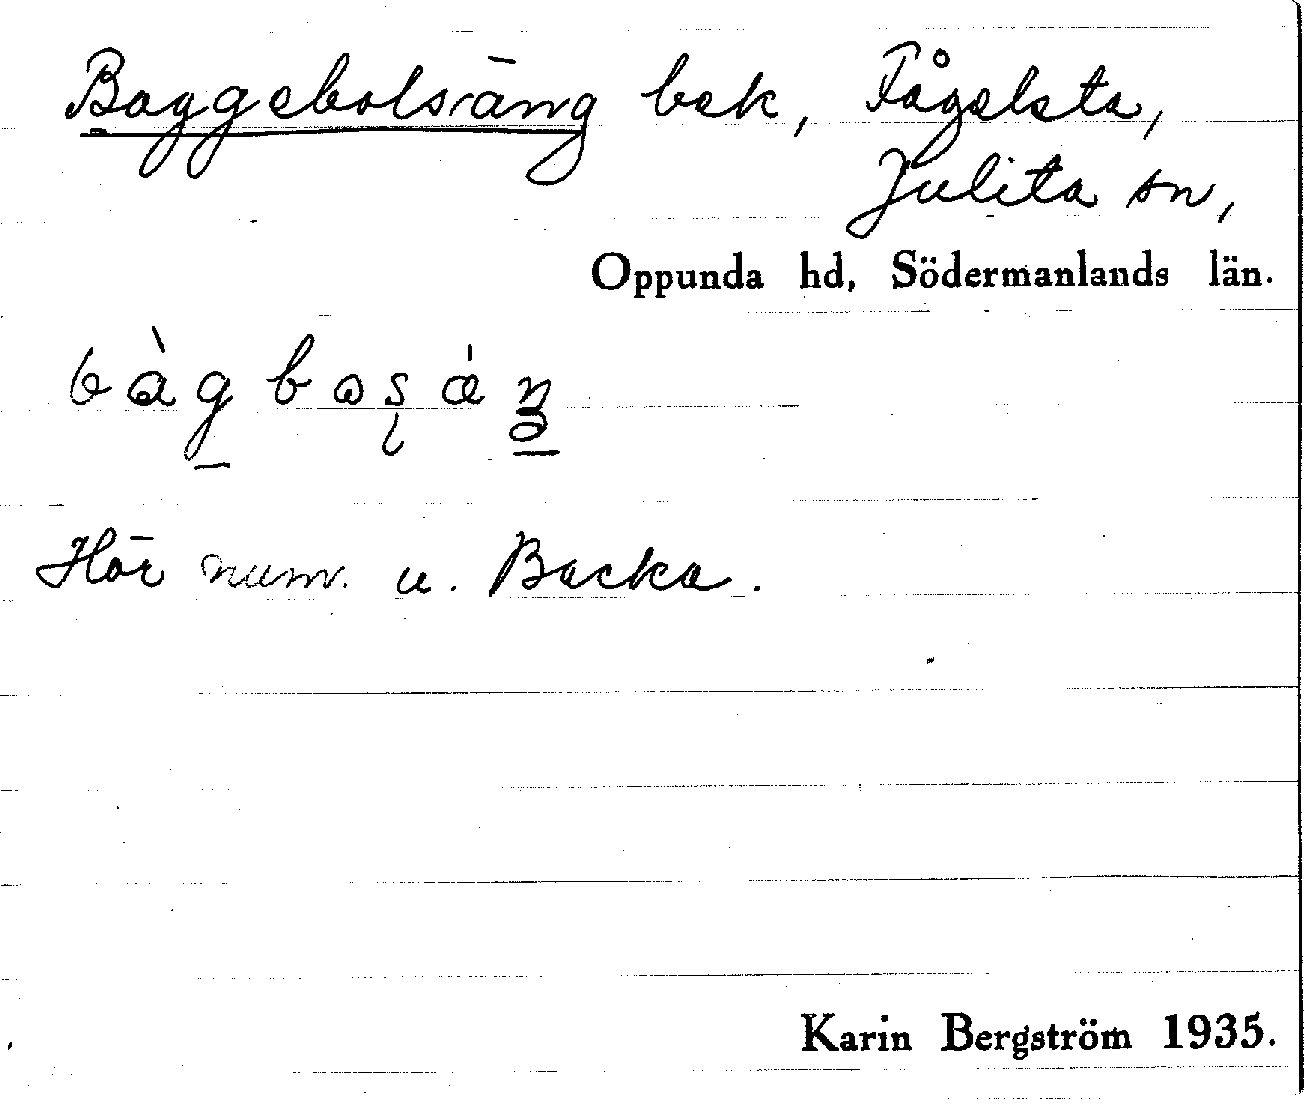 Baggebolsäng bek, Fågelsta,
Julita sn,
Oppunda hd, Södermanlands län.
bàg bosäŋ
Hör num. u. Backa.
Karin Bergström 1935.